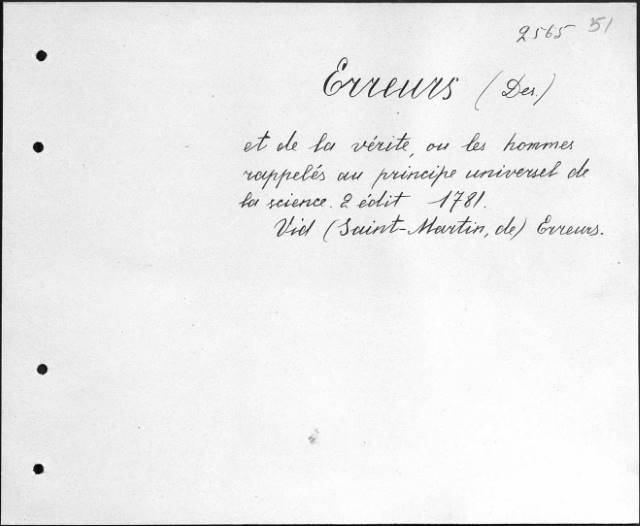 2565 51
Erreurs (Des.)
et de la vérite, ou les hommes
rappelés au principe universel de
la science. 2 édit 1781.
Vid (Saint-Martin, de) Erreurs.